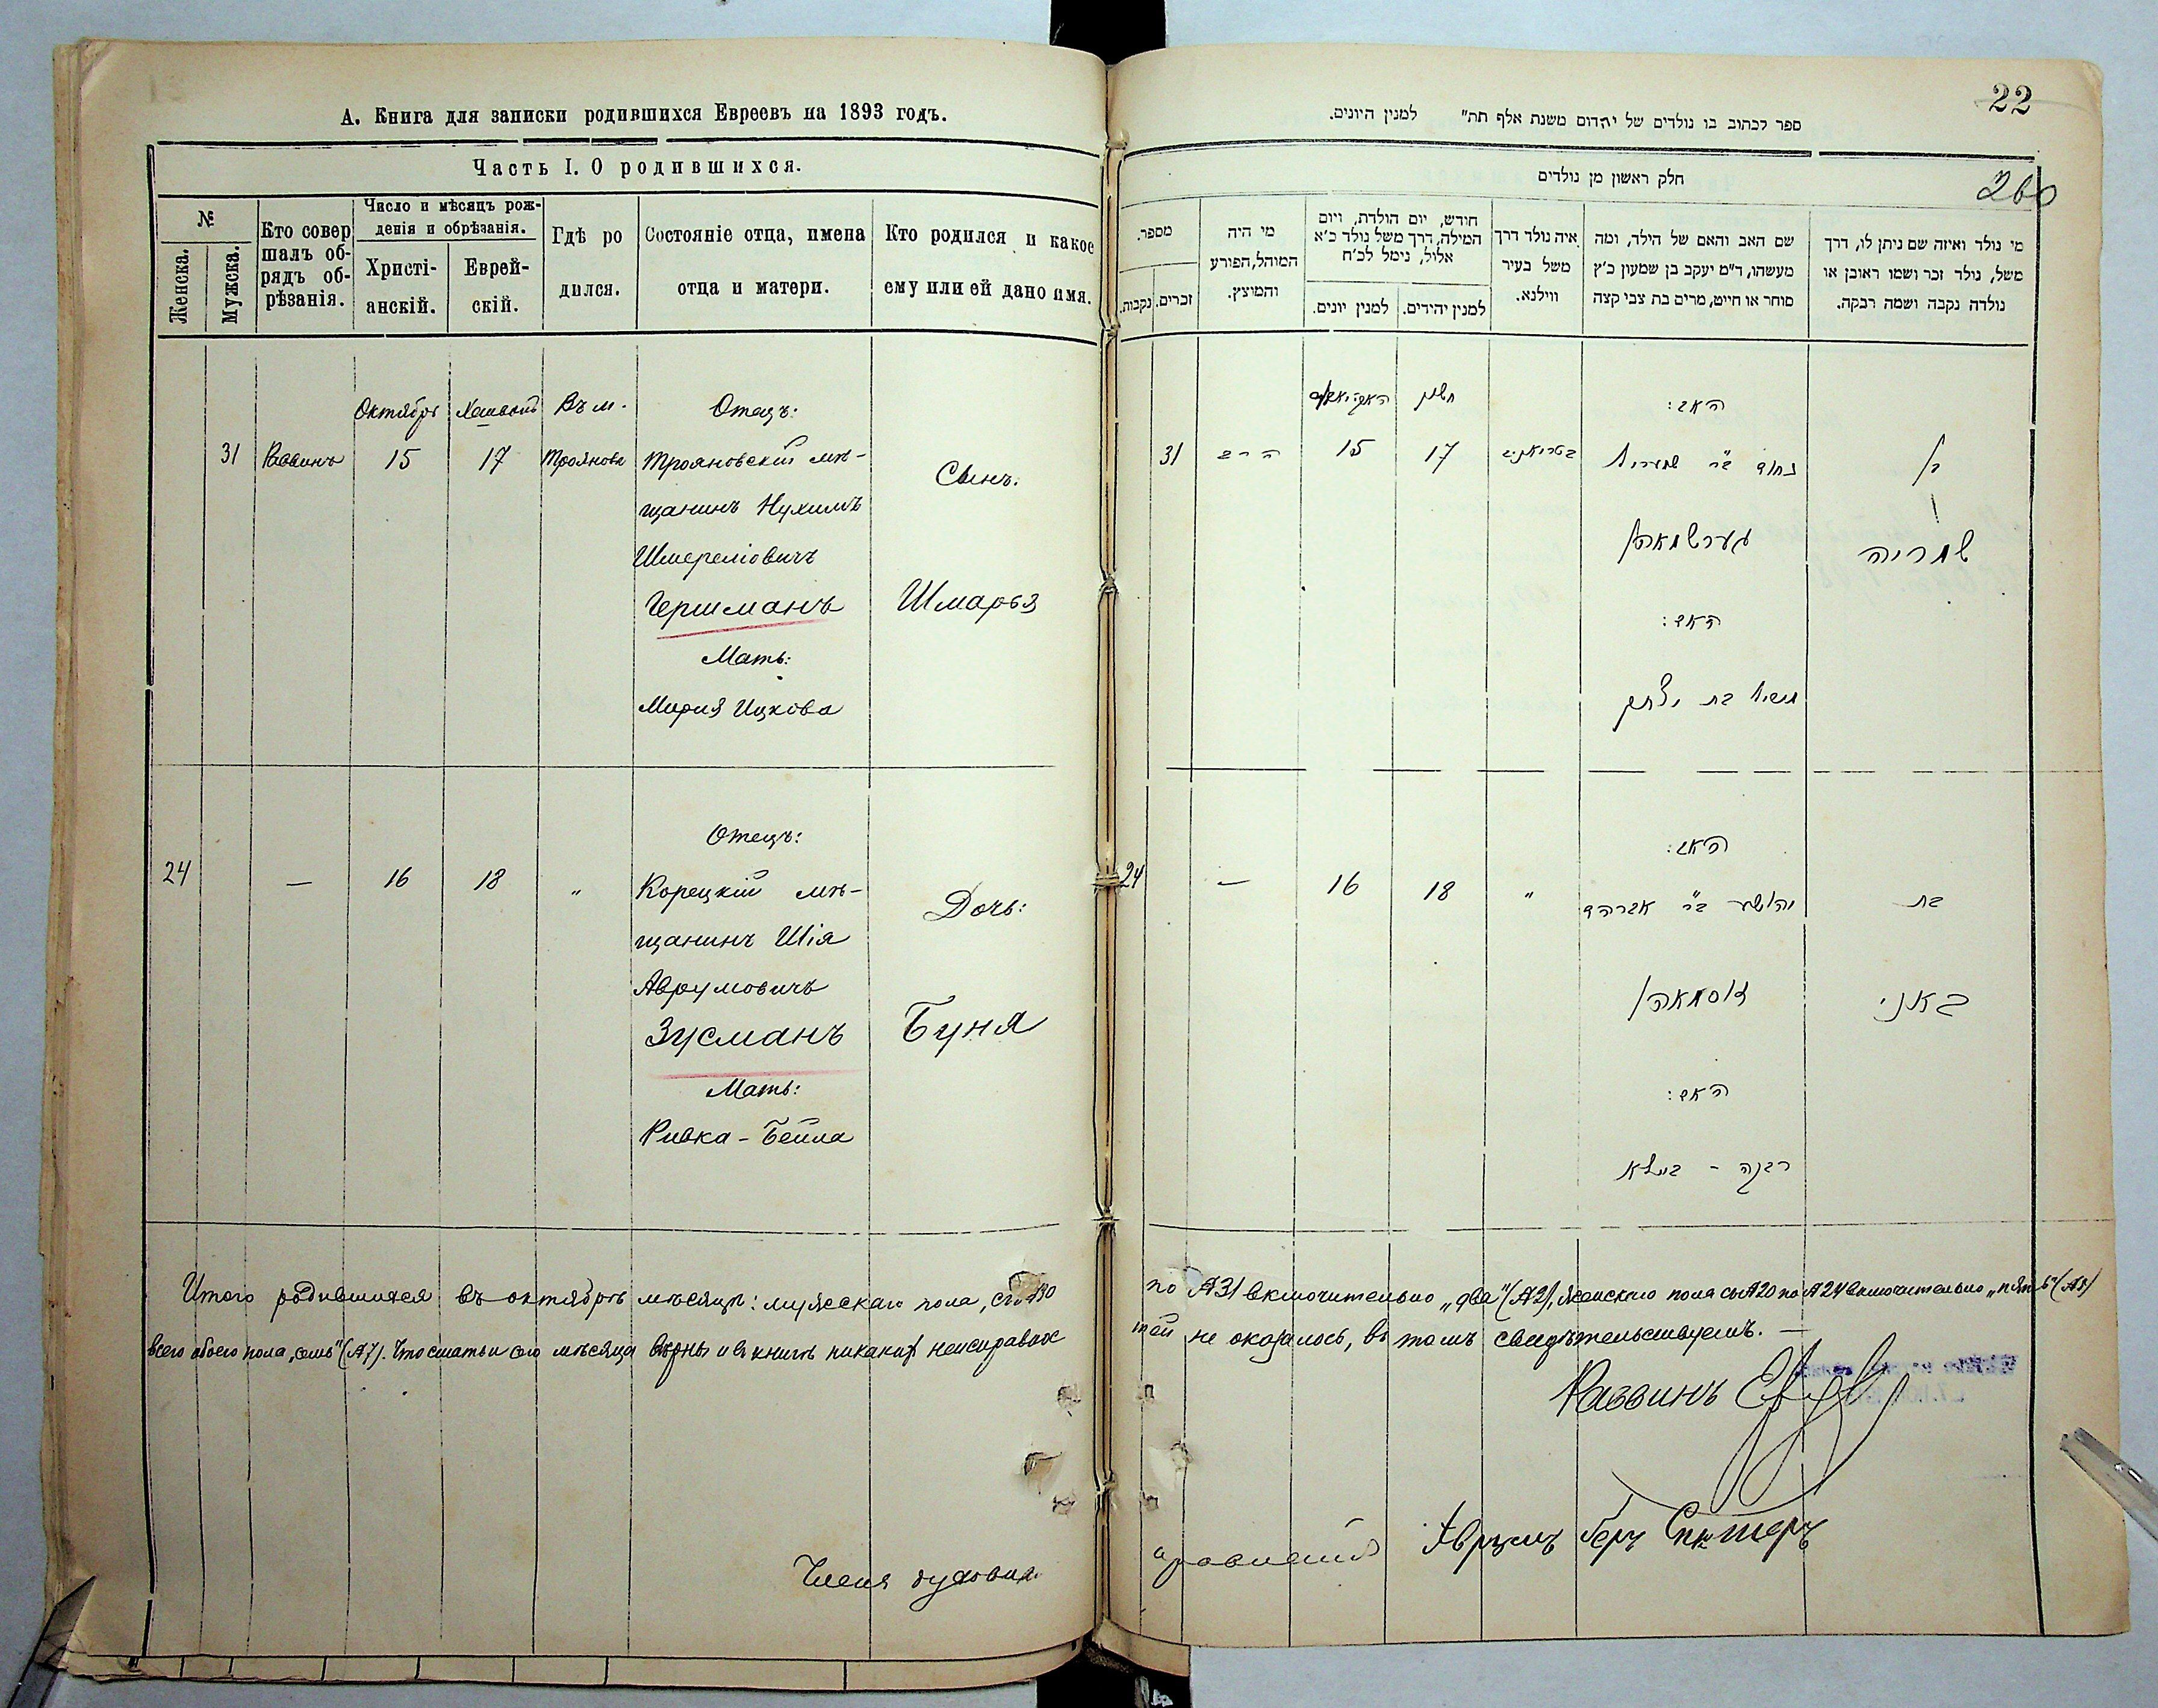 А. Книга для записки родившихся Евреевъ на 1893 годъ.
Часть I. О родившихся.
№
Женска.
Мужска.
Кто совер
шалъ об-
рядъ об-
рѣзанія.
Число и мѣсяцъ рож-
денія и обрѣзанія.
Христі-
анскій.
Еврей-
скій.
Гдѣ ро
дился.
Состояніе отца, имена
отца и матери.
Кто родился и какое
ему или ей дано имя.
Октябрь
Въ м.
Отецъ:
31 Раввинъ 15 17 Трояновѣ Трояновскій мѣ-
щанинъ Нухимъ
Шмереліовичъ
Гершманъ
Мать:
Мирия Ицкова
Сынъ.
Шмарья
Отецъ:
24 — 16 18 „ Корецкій мѣ-
щанинъ Шія
Аврумовичъ
Зусманъ
Мать:
Ривка - Бейла
Дочь:
Буня
Итого родившихся въ октябрѣ мѣсяцѣ: мужескаго пола, съ №30
всего обоего пола „семь" (№7). Что статьи сего мѣсяца вѣрны и въ книгѣ никакихъ неисправнос
Члены духовна
22
260
ספר לכתוב בו נולדים של יהדום משנת אלף תת״ למנין היונים.
חלק ראשון מן נולדים
מספר.
נקבות.
זכרים.
מי היה
המוהל, הפורע
והמוצץ.
חודש, יום הולדת, ויום
המילה, דרך משל נולד כ׳א
אלול, נימל לכ׳ח
למנין יונים.
למנין יהידים.
איה נולד דרך
משל בעיר
ווילנא.
שם האב והאם של הילד, ומה
מעשהו, ד״מ יעקב בן שמעון כ׳ץ
סוחר או חייט, מרים בת צבי קצה
מי נולד ואיזה שם ניתן לו, דרך
משל, נולד זכר ושמו ראובן או
נולדה נקבה ושמה רבקה.
חשון
האב:
31 הרב 15 17
נחום ב״ר שמריל
גערשמאן
האם:
בת יצחק
בן
שמריה
האב:
24 — 16 18 „ יהושע ב״ר אברהם
זוסמאן
האם:
רבקה - ביילא
בת
באני
по №31 включительно „два" (№2), женскаго пола съ №20 по №24 включительно „пять" (№5)
тей не оказалось, въ томъ свидѣтельствуемъ. —
Раввинъ
правленія Аврумъ Беръ